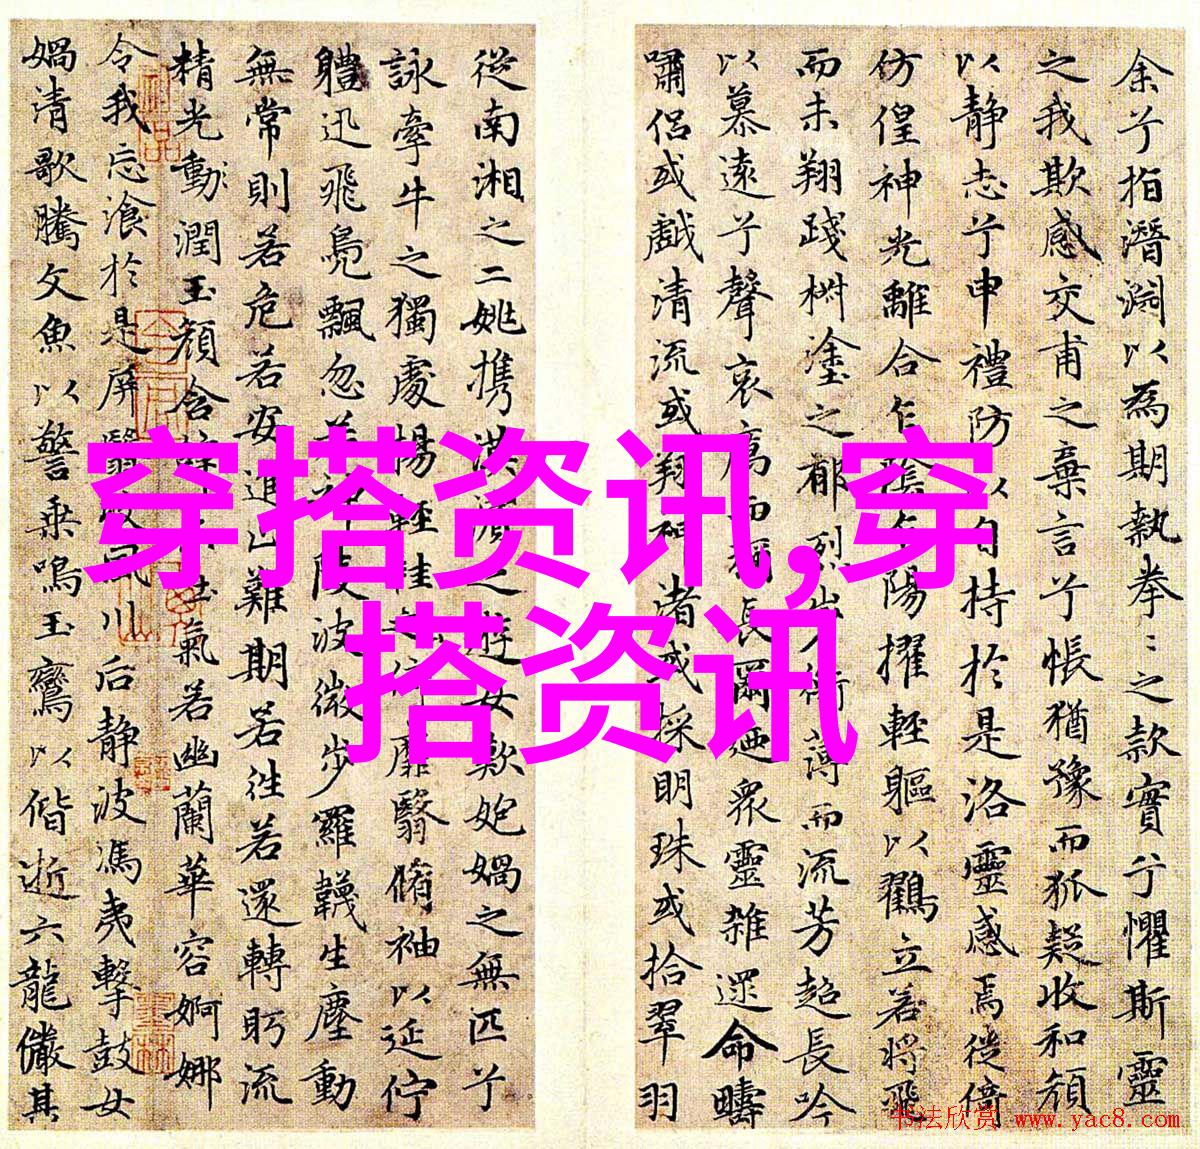 余兮指潛淵以為期執拳〻之款實兮懼斯靈
之我欺感交甫之棄言兮悵猶豫而狐疑收和顏
以静志兮申禮防以自持於是洛靈感焉徙倚
仿偟神光離合乍陰乍陽擢輕軀以鶴立若將飛
而未翔踐椒塗之郁烈步衡薄而流芳超長吟
以慕遠兮聲哀厲而彌長爾迺眾靈雜遝命疇
嘯侣或戲清流或翔神渚或採明珠或拾翠羽
從南湘之二姚携漢濱之遊女歎匏媧之無匹兮
詠牽牛之獨處揚輕袿之倚靡翳脩袖以延佇
體迅飛鳧飄忽若神陵波微步羅韈生塵動
無常則若危若安進止難期若往若還轉眄流
精光動潤玉顏含辭未吐氣若幽蘭華容婀娜
令我忘飡於是屏翳收風川后静波馮夷擊鼓女
媧清歌騰文魚以警乘鳴玉鸞以偕逝六龍儼其
穿搭资讯,穿
搭资讯
书法欣赏 www.yac8.com